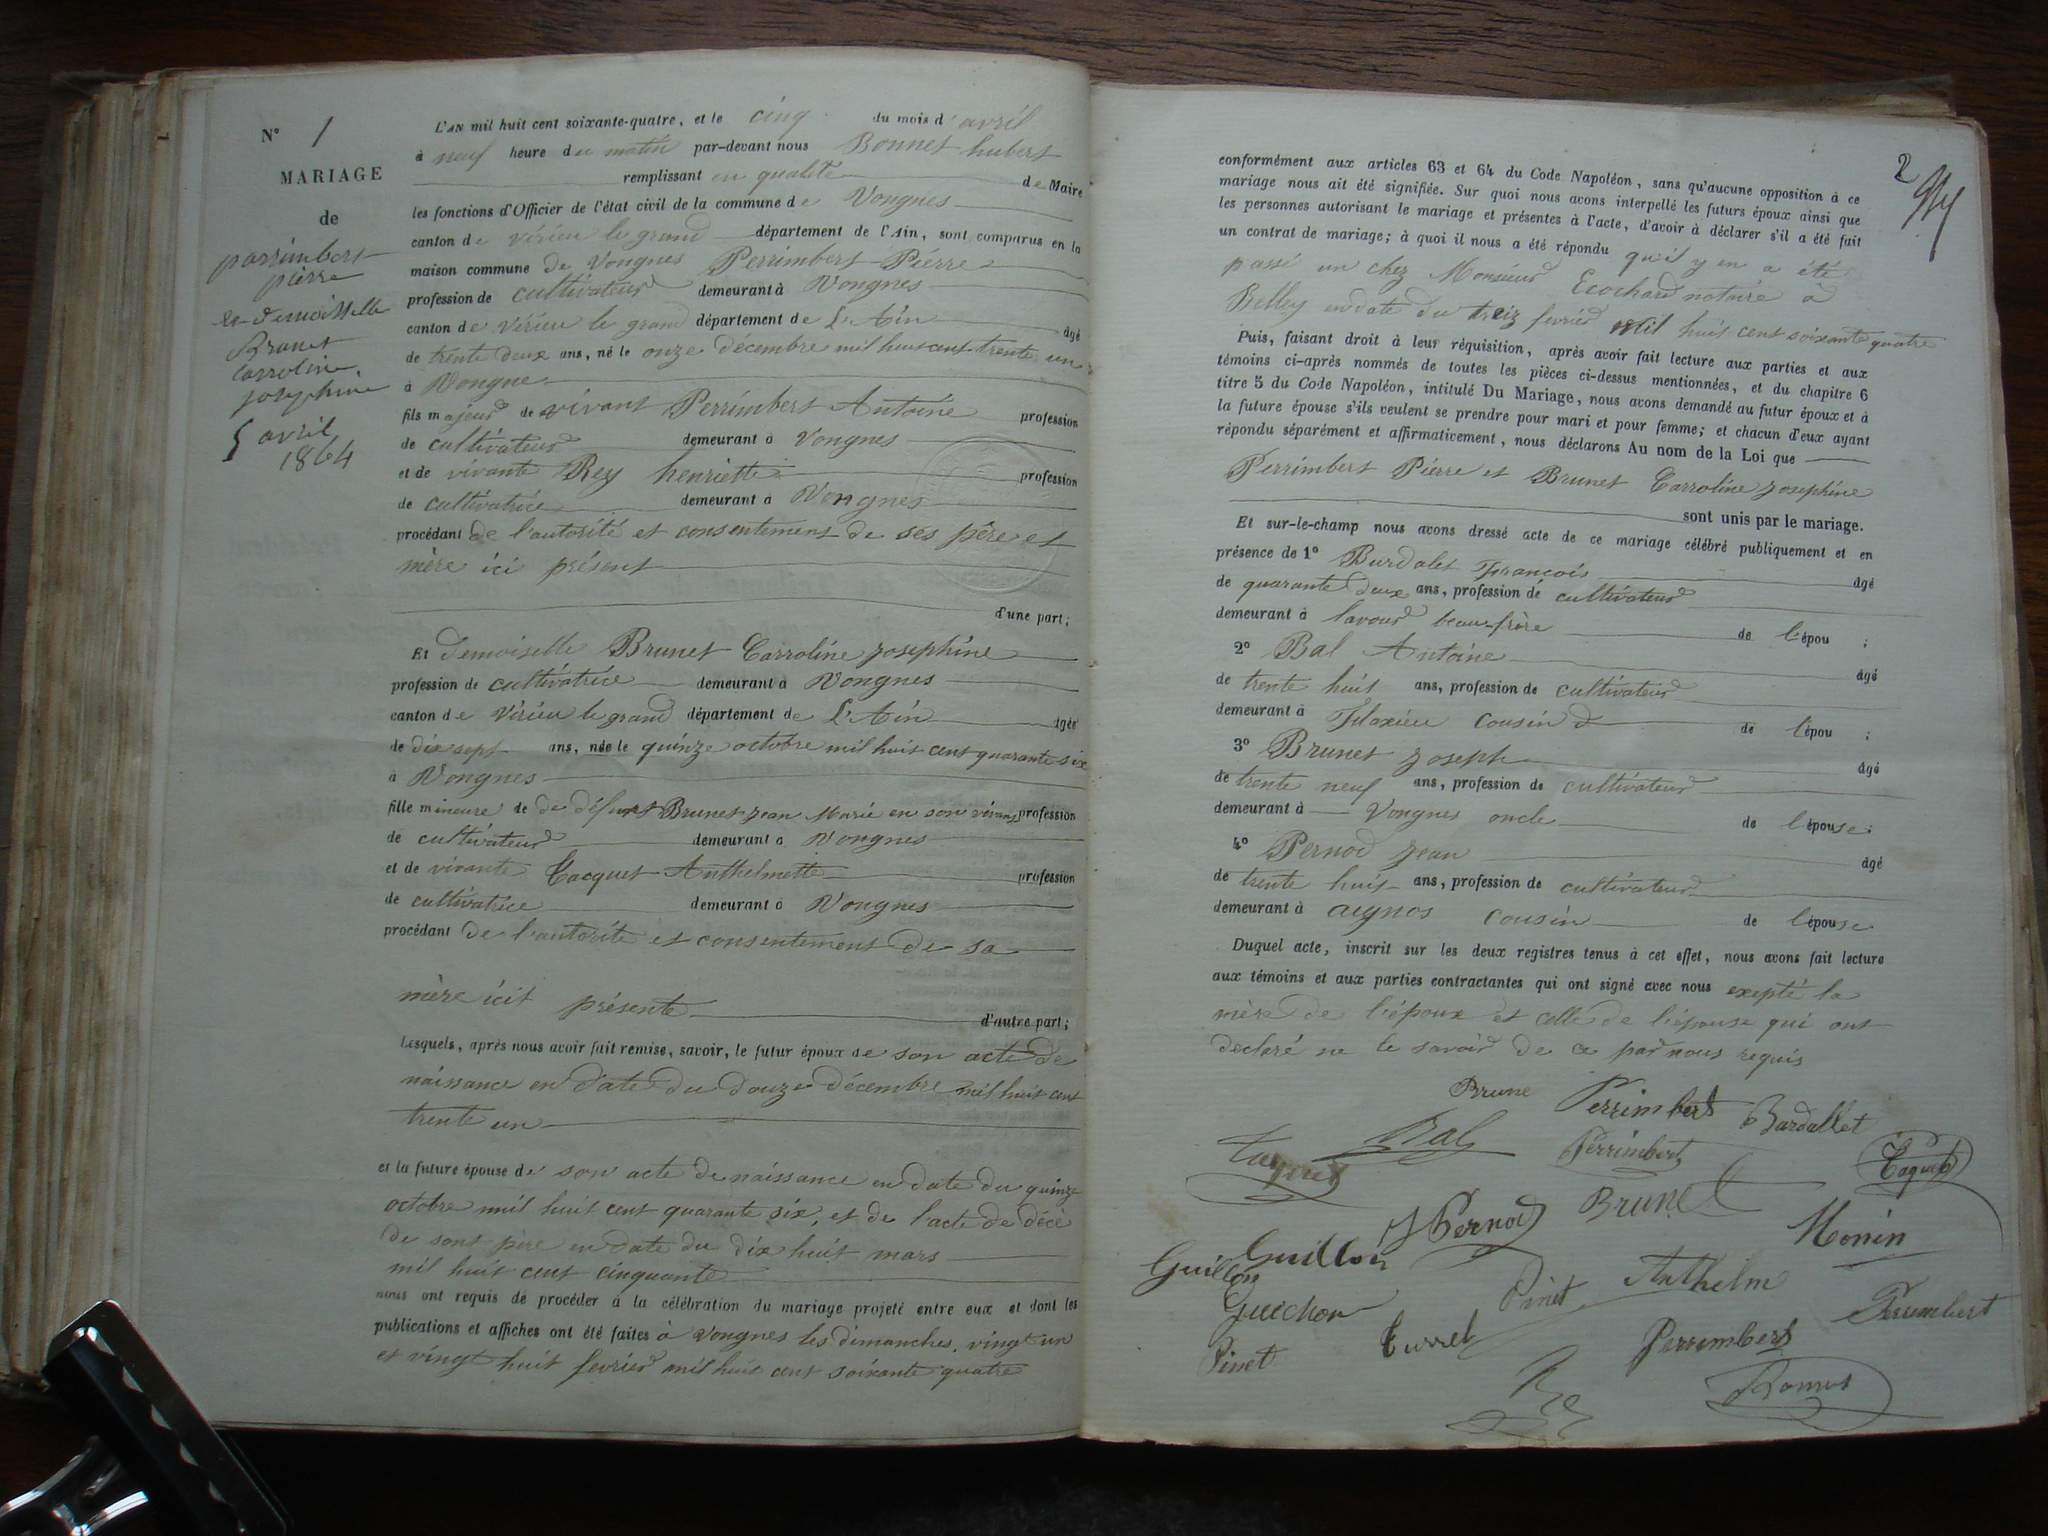 N° 1
MARIAGE
de
parrimbert
pierre
et demoisselle
Brunet
Carroline
josephine
5 avril
1864
L'AN mil huit cent soixante-quatre, et le cinq du mois d'avril
à neuf heure du matin par-devant nous Bonnet hubert
remplissant en qualité de Maire
les fonctions d'Officier de l'état civil de la commune de Vongnes
canton de Virieu le grand département de l'Ain, sont comparus en la
maison commune de Vongnes Perrimbert Pierre
profession de cultivateur demeurant à Vongnes
canton de Virieu le grand département de L'Ain âgé
de trente deux ans, né le onze décembre mil huit cent trente un
à Vongne
fils majeur de vivant Perrimbert Antoine profession
de cultivateur demeurant à Vongnes
et de vivante Rey henriette profession
de cultivatrice demeurant à Vongnes
procédant de l'autorité et consentement de ses père et
mère ici présent
d'une part;
Et demoiselle Brunet Carroline josephine
profession de cultivatrice demeurant à Vongnes
canton de Virieu le grand département de L'Ain âgée
de dix sept ans, née le quinze octobre mil huit cent quarante six
à Vongnes
fille mineure de de défunt Brunet jean Marie en son vivant profession
de cultivateur demeurant à Vongnes
et de vivante Tacquet Anthelmette profession
de cultivatrice demeurant à Vongnes
procédant de l'autorité et consentement de sa
mère icit présente
d'autre part;
Lesquels, après nous avoir fait remise, savoir, le futur époux de son acte de
naissance en date du douze décembre mil huit cent
trente un
et la future épouse de son acte de naissance en date du quinze
octobre mil huit cent quarante six, et de l'acte de décè
de sont père en date du dix huit mars
mil huit cent cinquante
nous ont requis de procéder à la célébration du mariage projeté entre eux et dont les
publications et affiches ont été faites à Vongnes les dimanches, vingt un
et vingt huit fevrier mil huit cent soixante quatre
2
conformément aux articles 63 et 64 du Code Napoléon, sans qu'aucune opposition à ce
mariage nous ait été signifiée. Sur quoi nous avons interpellé les futurs époux ainsi que
les personnes autorisant le mariage et présentes à l'acte, d'avoir à déclarer s'il a été fait
un contrat de mariage; à quoi il nous a été répondu qu'il y en a été
passé un chez Monsieur Ecochard notaire à
Belley en date du treiz fevrier mil huit cent soixante quatre
Puis, faisant droit à leur réquisition, après avoir fait lecture aux parties et aux
témoins ci-après nommés de toutes les pièces ci-dessus mentionnées, et du chapitre 6
titre 5 du Code Napoléon, intitulé Du Mariage, nous avons demandé au futur époux et à
la future épouse s'ils veulent se prendre pour mari et pour femme; et chacun d'eux ayant
répondu séparément et affirmativement, nous déclarons Au nom de la Loi que
Perrimbert Pierre et Brunet Carroline josephine
sont unis par le mariage.
Et sur-le-champ nous avons dressé acte de ce mariage célébré publiquement et en
présence de 1° Burdalet François âgé
de quarante deux ans, profession de cultivateur
demeurant à lavour beau-frère de l'épou ;
2° Bal Antoine âgé
de trente huit ans, profession de cultivateur
demeurant à Flaxieu cousin de l'épou ;
3° Brunet joseph âgé
de trente neuf ans, profession de cultivateur
demeurant à Vongnes oncle de l'épouse;
4° Pernod jean âgé
de trente huit ans, profession de cultivateur
demeurant à aignos cousin de l'épouse
Duquel acte, inscrit sur les deux registres tenus à cet effet, nous avons fait lecture
aux témoins et aux parties contractantes qui ont signé avec nous exepté la
mère de l'époux et celle de l'épouse qui ont
declaré ne le savoir de ce par nous requis
Brune Perrimbert Bardallet
Taquet Bal Perrimbert Taquet
J Pernod Brunet Monin
Guillon Guillon
Guichon Pinet Anthelme Perrimbert
Pinet Turrel Perrimbert
Bonnet